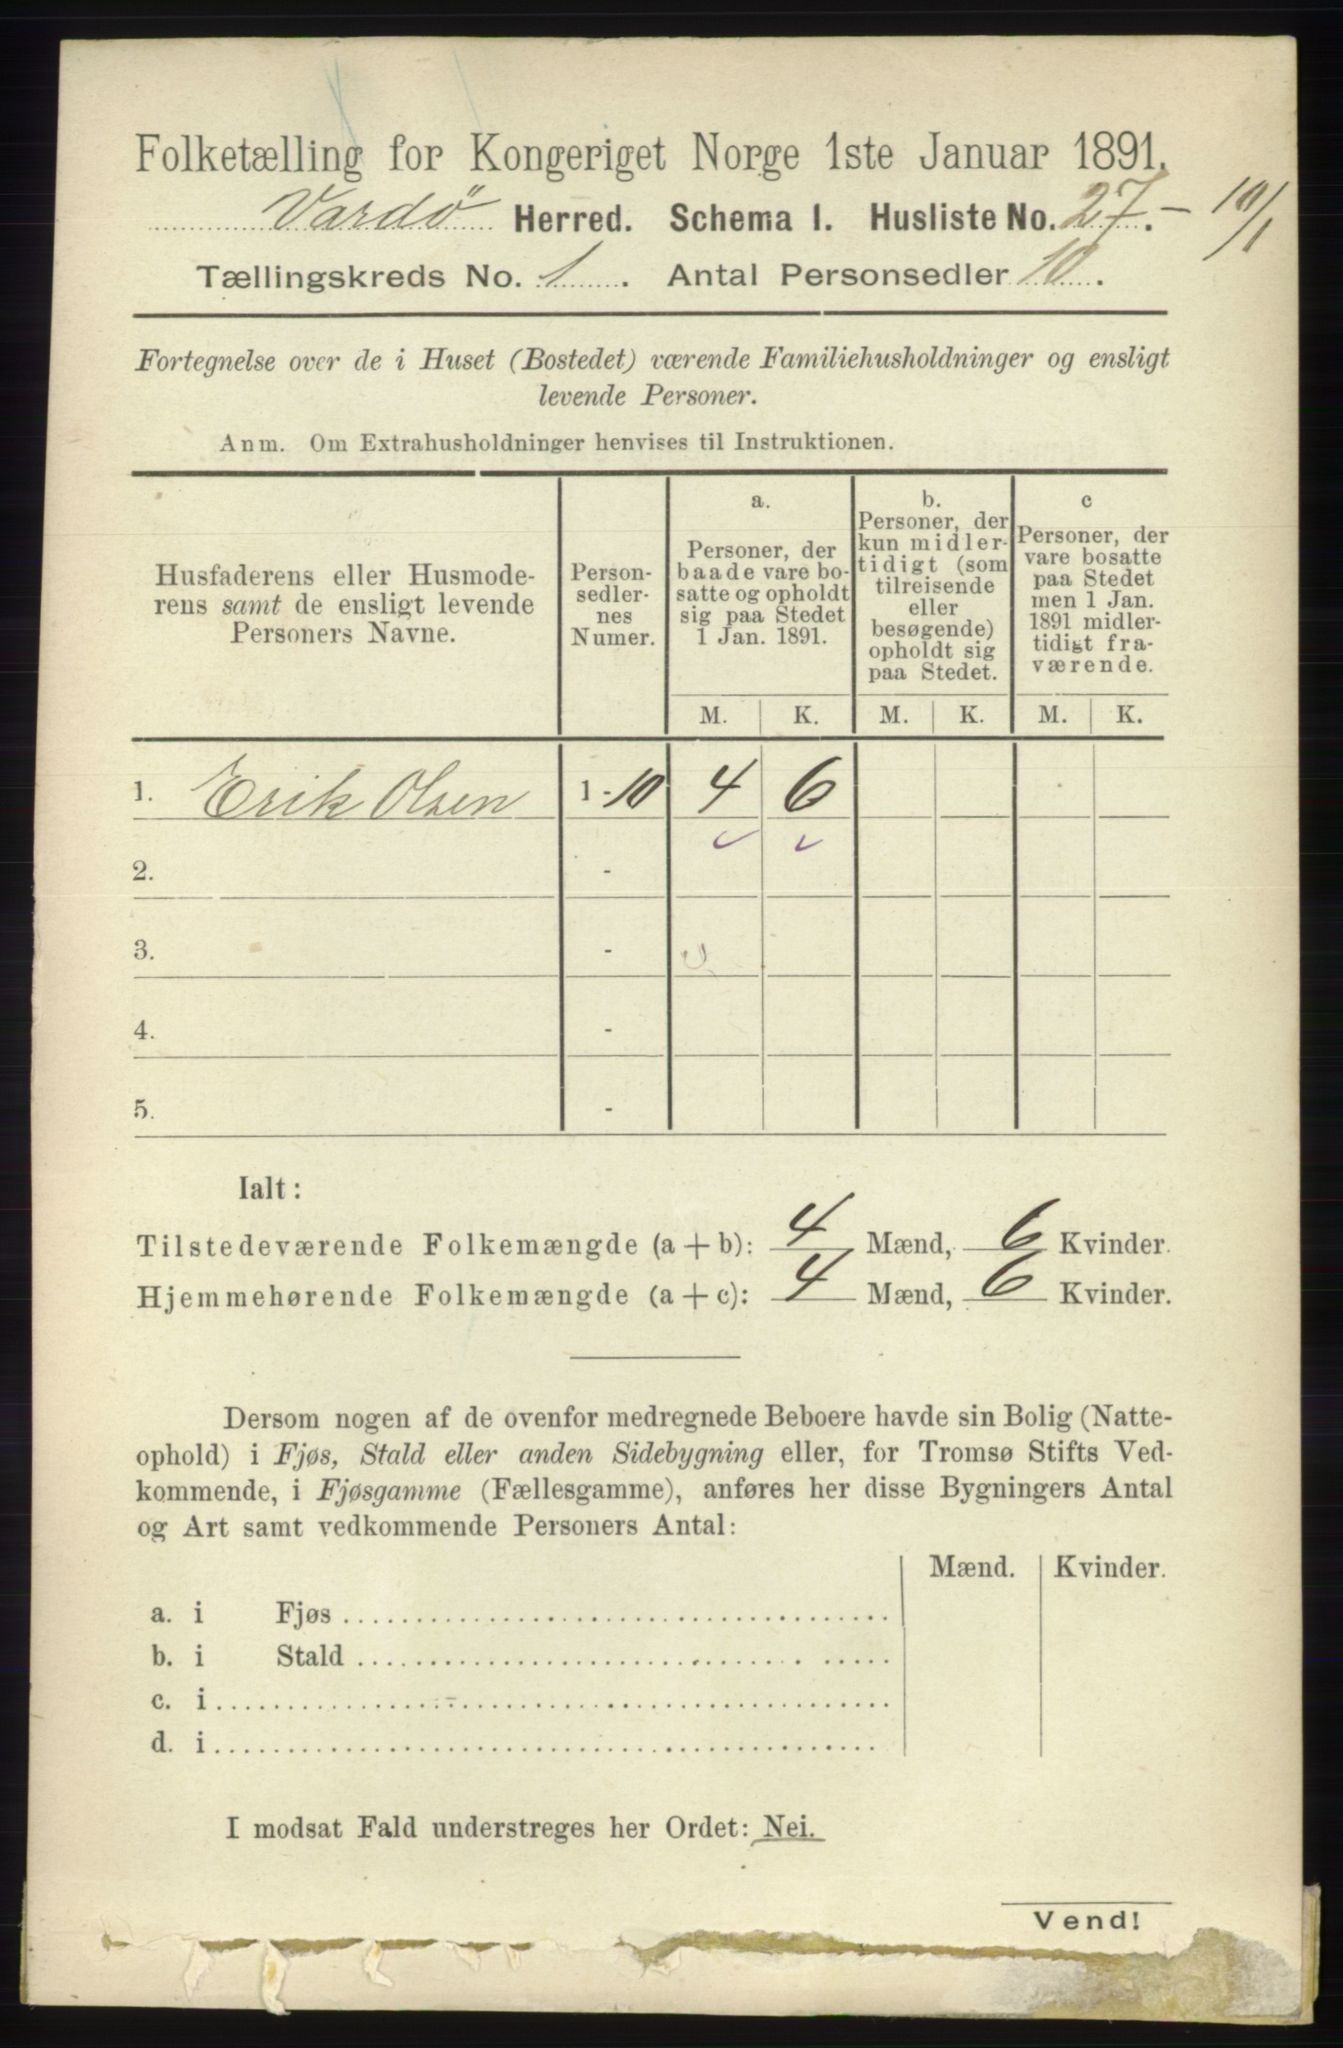 Folketælling for Kongeriget Norge 1ste Januar 1891.
Vardö Herred. Schema I. Husliste No. 27. – 10/1
Tællingskreds No. 1. Antal Personsedler 10.
Fortegnelse over de i Huset (Bostedet) værende Familiehusholdninger og ensligt
levende Personer.
Anm. Om Extrahusholdninger henvises til Instruktionen.
Husfaderens eller Husmode-
rens samt de ensligt levende
Personers Navne.
Person-
sedler-
nes
Numer.
a.
Personer, der
baade vare bo-
satte og opholdt
sig paa Stedet
1 Jan. 1891.
b.
Personer, der
kun midler-
tidigt (som
tilreisende
eller
besøgende)
opholdt sig
paa Stedet.
c
Personer, der
vare bosatte
paa Stedet
men 1 Jan.
1891 midler-
tidigt fra-
værende.
M. K. M. K. M. K.
1. Erik Olsen 1-10 4 6
2. -
3. -
4. -
5. -
Ialt:
Tilstedeværende Folkemængde (a + b): 4 Mænd, 6 Kvinder.
Hjemmehørende Folkemængde (a + c): 4 Mænd, 6 Kvinder.
Dersom nogen af de ovenfor medregnede Beboere havde sin Bolig (Natte-
ophold) i Fjøs, Stald eller anden Sidebygning eller, for Tromsø Stifts Ved-
kommende, i Fjøsgamme (Fællesgamme), anføres her disse Bygningers Antal
og Art samt vedkommende Personers Antal:
Mænd. Kvinder.
a. i Fjøs
b. i Stald
c. i
d. i
I modsat Fald understreges her Ordet: Nei.
Vend!